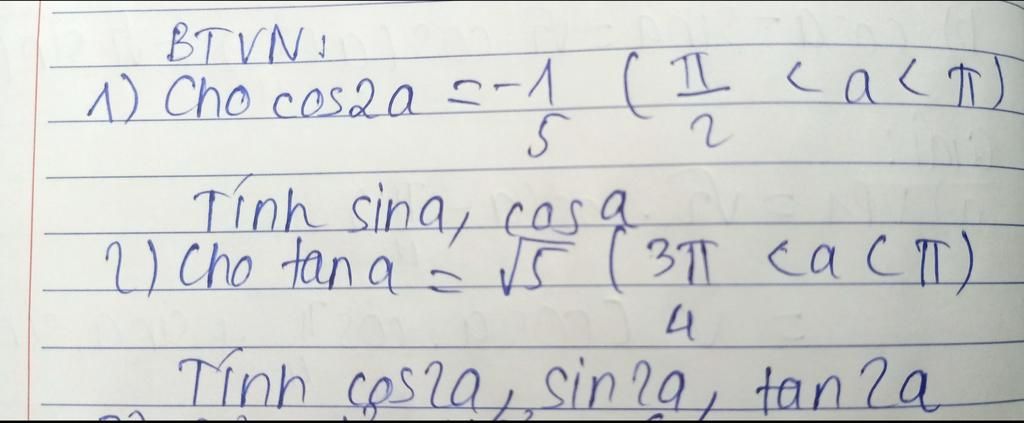 BTVN:
1) Cho cos2a = -1/5 (π/2 < a < π)
Tính sina, cosa
2) Cho tana = √5 (3π/4 < a < π)
Tính cos2a, sin2a, tan2a